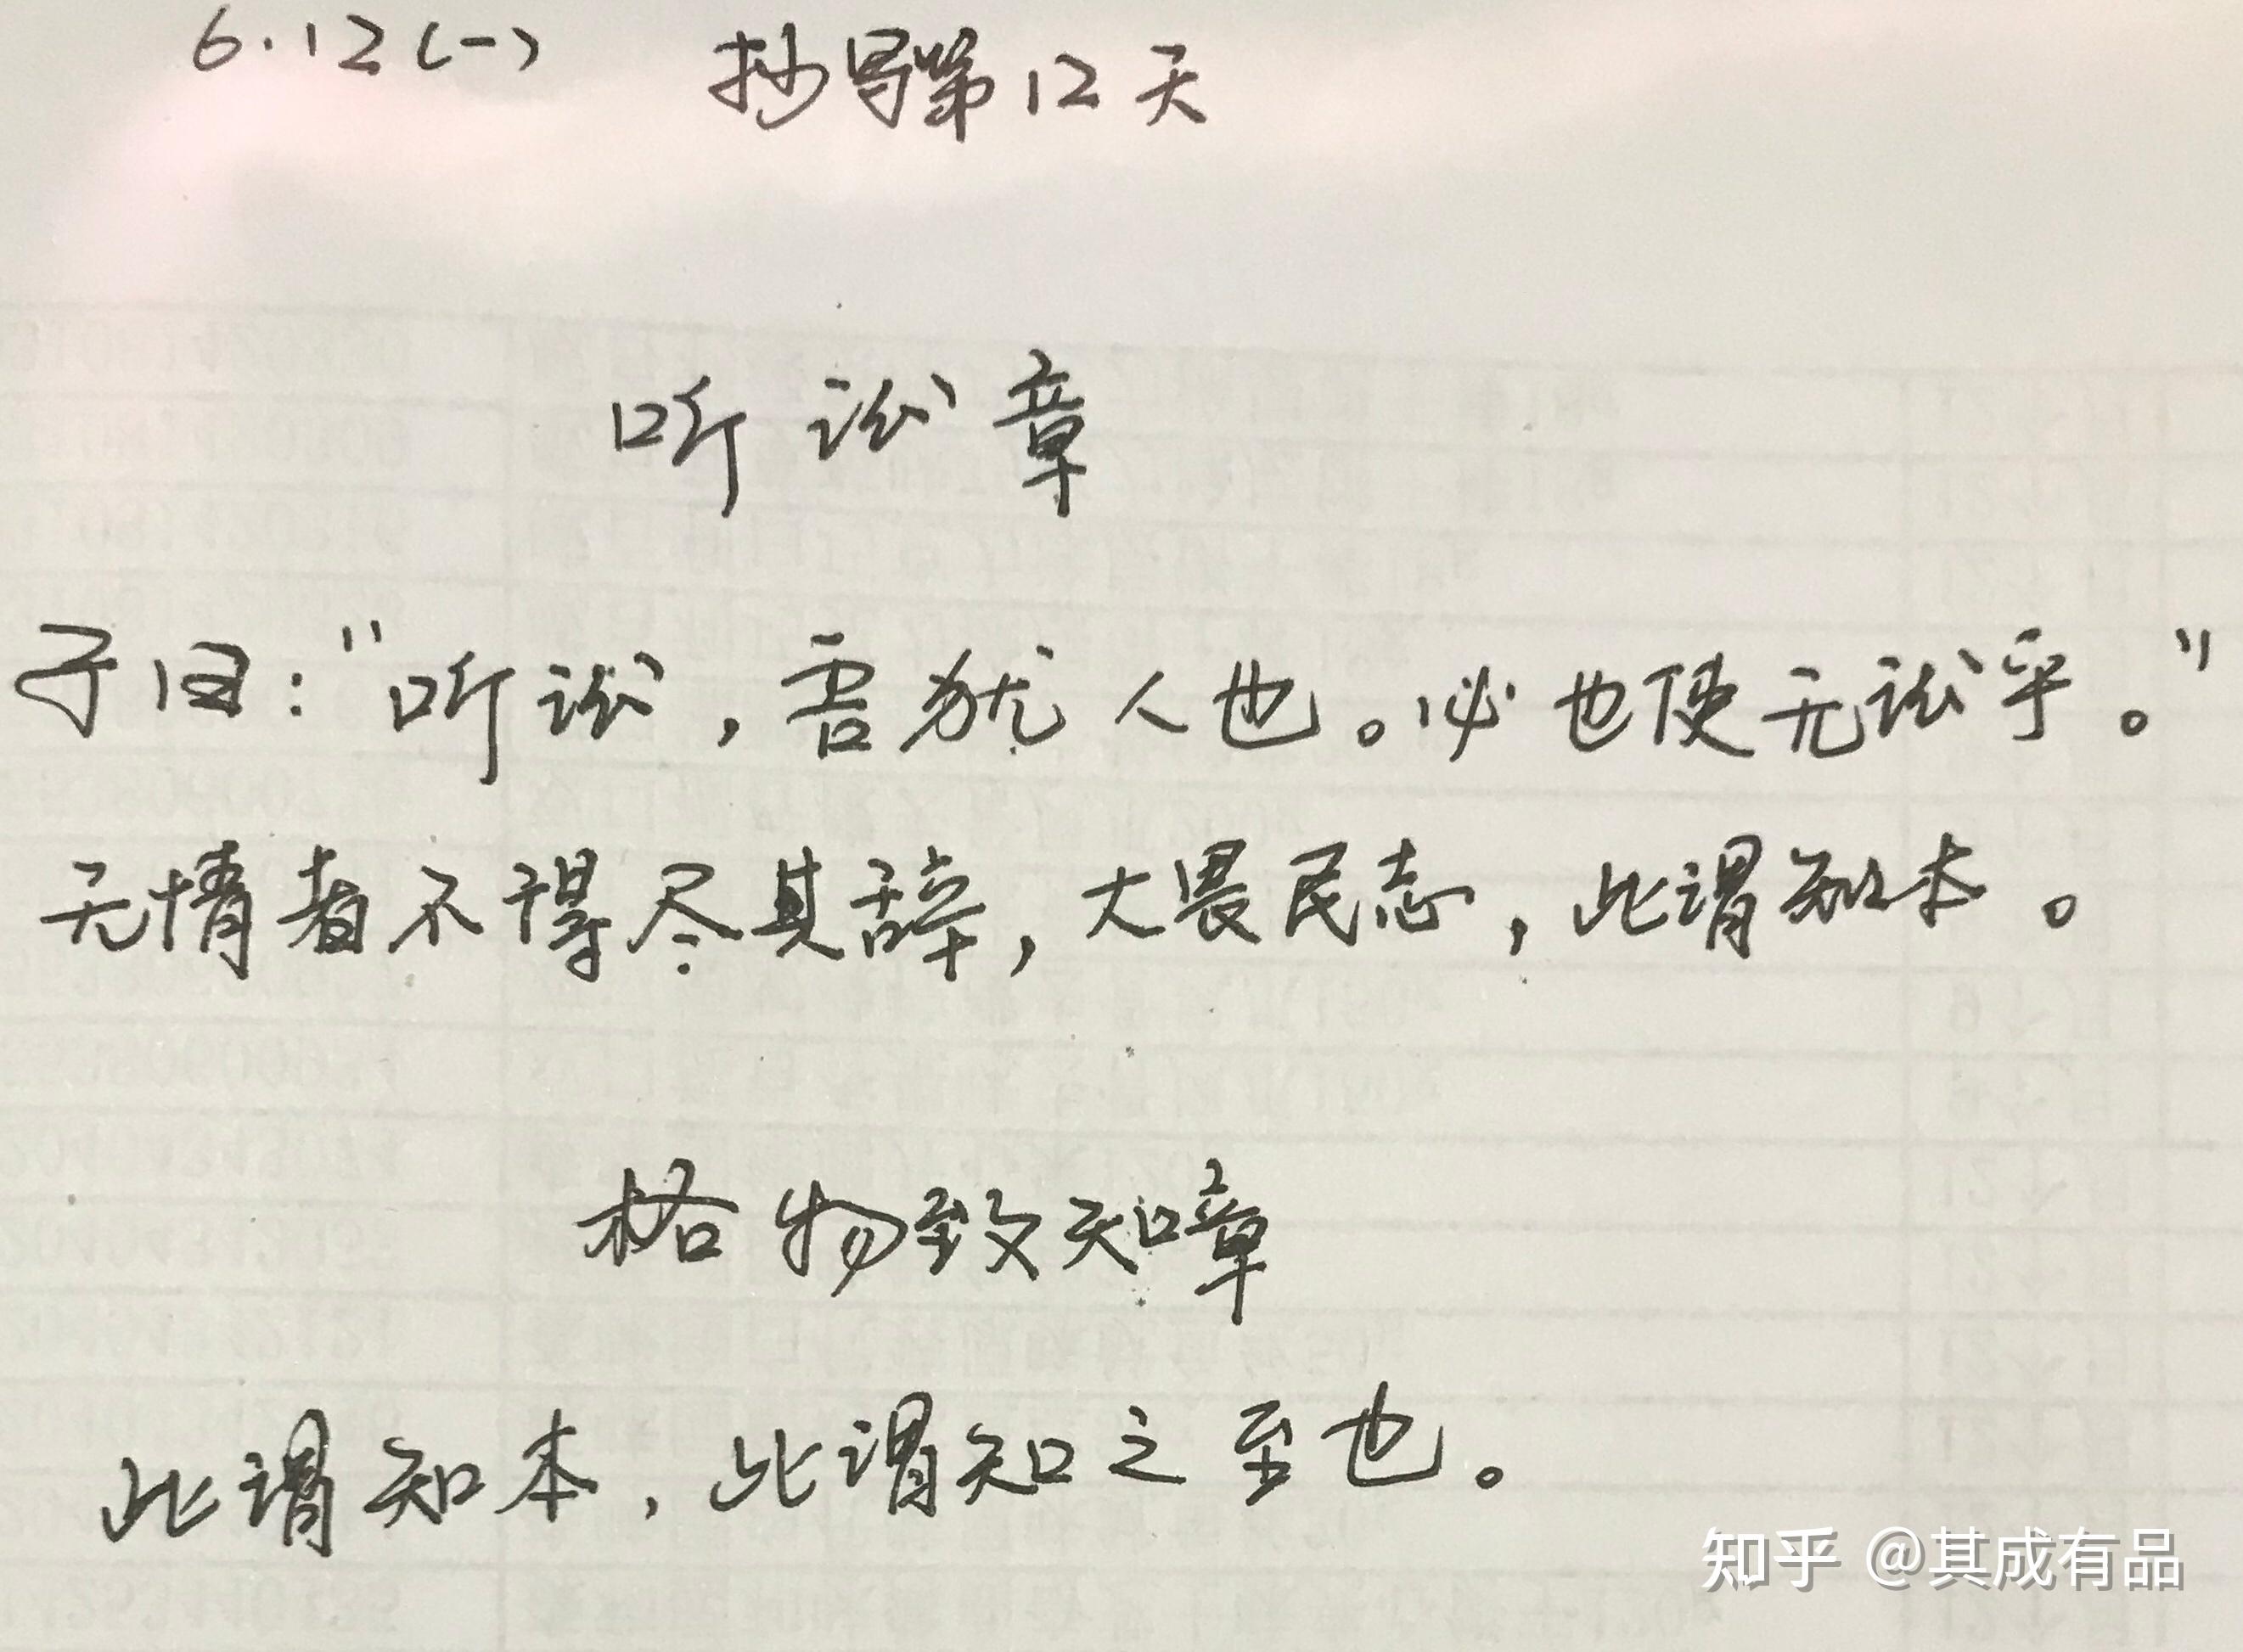 6.12(一) 抄写第12天
听讼章
子曰："听讼，吾犹人也。必也使无讼乎。"
无情者不得尽其辞，大畏民志，此谓知本。
格物致知章
此谓知本，此谓知之至也。
知乎 @其成有品